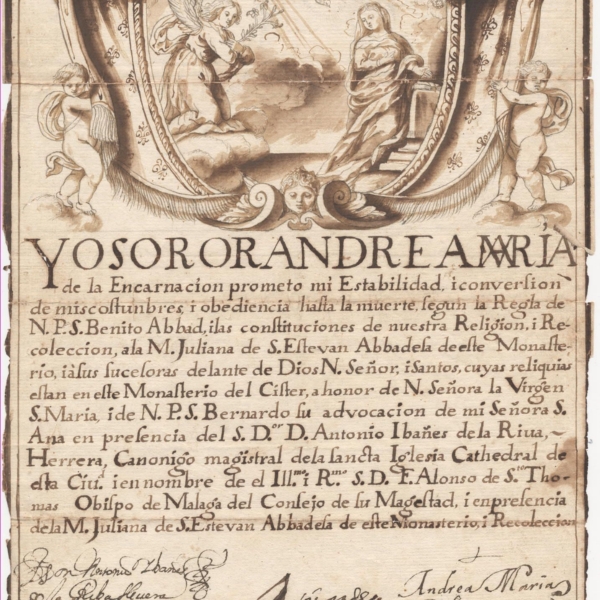 YO SOROR ANDREA MARÍA
de la Encarnacion prometo mi Estabilidad, i conversion
de mis costunbres, i obediencia hasta la muerte, segun la Regla de
N. P. S. Benito Abbad, i las constituciones de nuestra Religion, i Re-
coleccion, a la M. Juliana de S. Estevan Abbadesa de este Monaste-
rio, i à sus sucesoras delante de Dios N. Señor, i Santos, cuyas reliquias
estan en este Monasterio del Cister, a honor de N. Señora la Virgen
S. Maria, i de N. P. S. Bernardo su advocacion de mi Señora S.
Ana en presencia del S. D.or D. Antonio Ibañes de la Riua,
Herrera, Canonigo magistral de la sancta Iglesia Cathedral de
esta Ciu.d i en nombre de el Ill.mo i R.mo S. D. F. Alonso de S.to Tho-
mas Obispo de Malaga del Consejo de su Magestad, i en presencia
de la M. Juliana de S. Estevan Abbadesa de este Monasterio, i Recoleccion
Don Antonio Ibañez
de la Riba Herrera
Andrea Maria